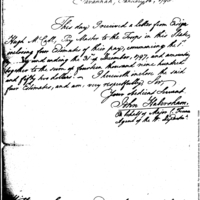 Savannah, February 16, 1798
This day I received a letter from Ensign
Hugh McCall, Pay Master to the Troops in this State,
inclosing four Estimates of their pay, commencing the 1st
and ending the 31st of December, 1797, and amounting
together to the sum of fourteen thousand nine hundred
and fifty six dollars — I herewith inclose the said
four Estimates, and am, very respectfully, Sir,
Your obedient Servant
John Habersham,
On behalf of Major
Agent of the W. Departmt